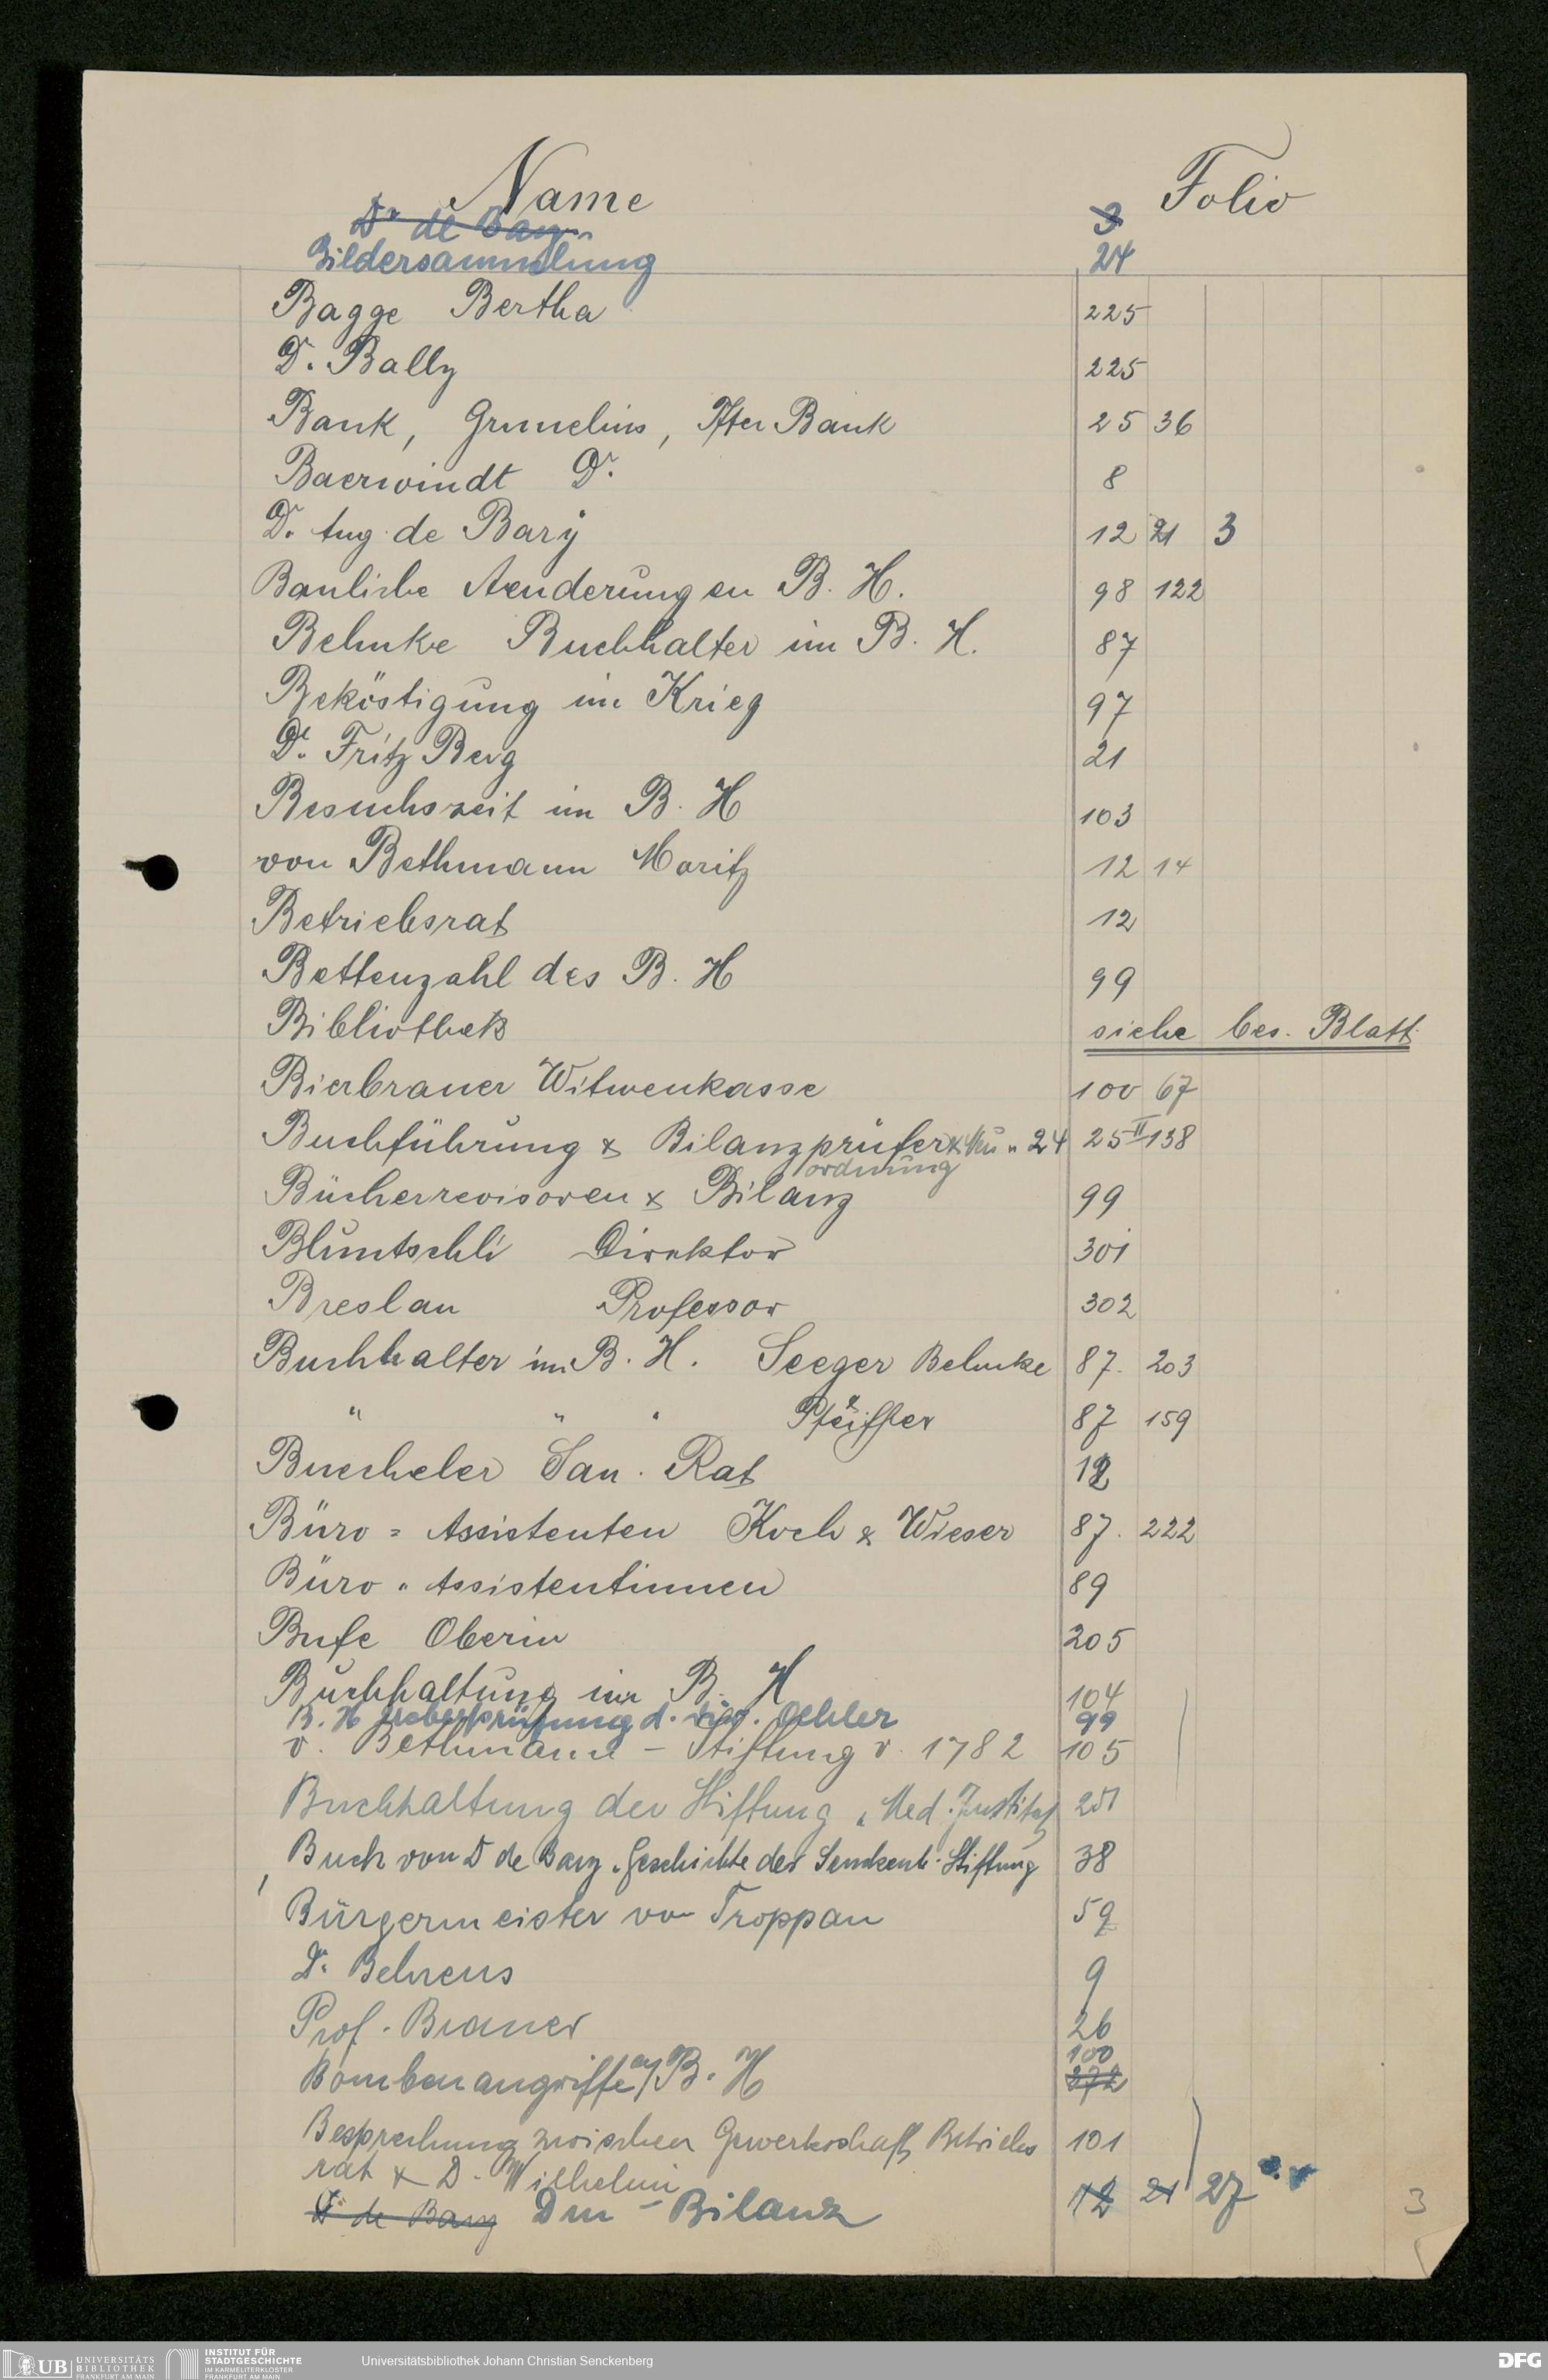 Name Folio
Dr de Bary 3
Bildersammlung 24
Bagge Bertha 225
Dr. Bally 225
Bank, Grunelius, Ffter Bank 25 36
Baerwindt Dr. 8
Dr. Aug. de Bary 12 21 3
Bauliche Aenderungen B. H. 98 122
Behnke Buchhalter im B. H. 87
Beköstigung im Krieg 97
Dr. Fritz Berg 21
Besuchszeit im B. H 103
von Bethmann Moritz 12 14
Betriebsrat 12
Bettenzahl des B. H 99
Bibliothek siehe bes. Blatt.
Bierbrauer Witwenkasse 100 67
Buchführung & Bilanzprüfer 24 25 II 138
ordnung
Bücherrevisoren & Bilanz 99
Bluntschli Direktor 301
Breslau Professor 302
Buchhalter im B. H. Seeger Behnke 87. 203
" " " Pfeiffer 87 159
Buecheler San. Rat 12
Büro = Assistenten Koch & Wieser 87. 222
Büro " Assistentinnen 89
Bufe Oberin 205
Buchhaltung im B. H 104
B. H Ueberprüfung d. Oehler 99
v. Bethmann - Stiftung v. 1782 105
Buchhaltung der Stiftung, Med. Institut 251
Buch von D de Bary "Geschichte der Senckenb. Stiftung 38
Bürgermeister von Troppau 59
Dr. Behrens 9
Prof. Brauer 26
100
Bombenangriffe a/ B. H 272
Besprechung zwischen Gewerkschaft, Betriebs 101
rat & D. Wilhelmi
Dr de Bary Dm - Bilanz 12 21 27
3
UB UNIVERSITÄTS
BIBLIOTHEK
FRANKFURT AM MAIN
INSTITUT FÜR
STADTGESCHICHTE
IM KARMELITERKLOSTER
FRANKFURT AM MAIN
Universitätsbibliothek Johann Christian Senckenberg
DFG